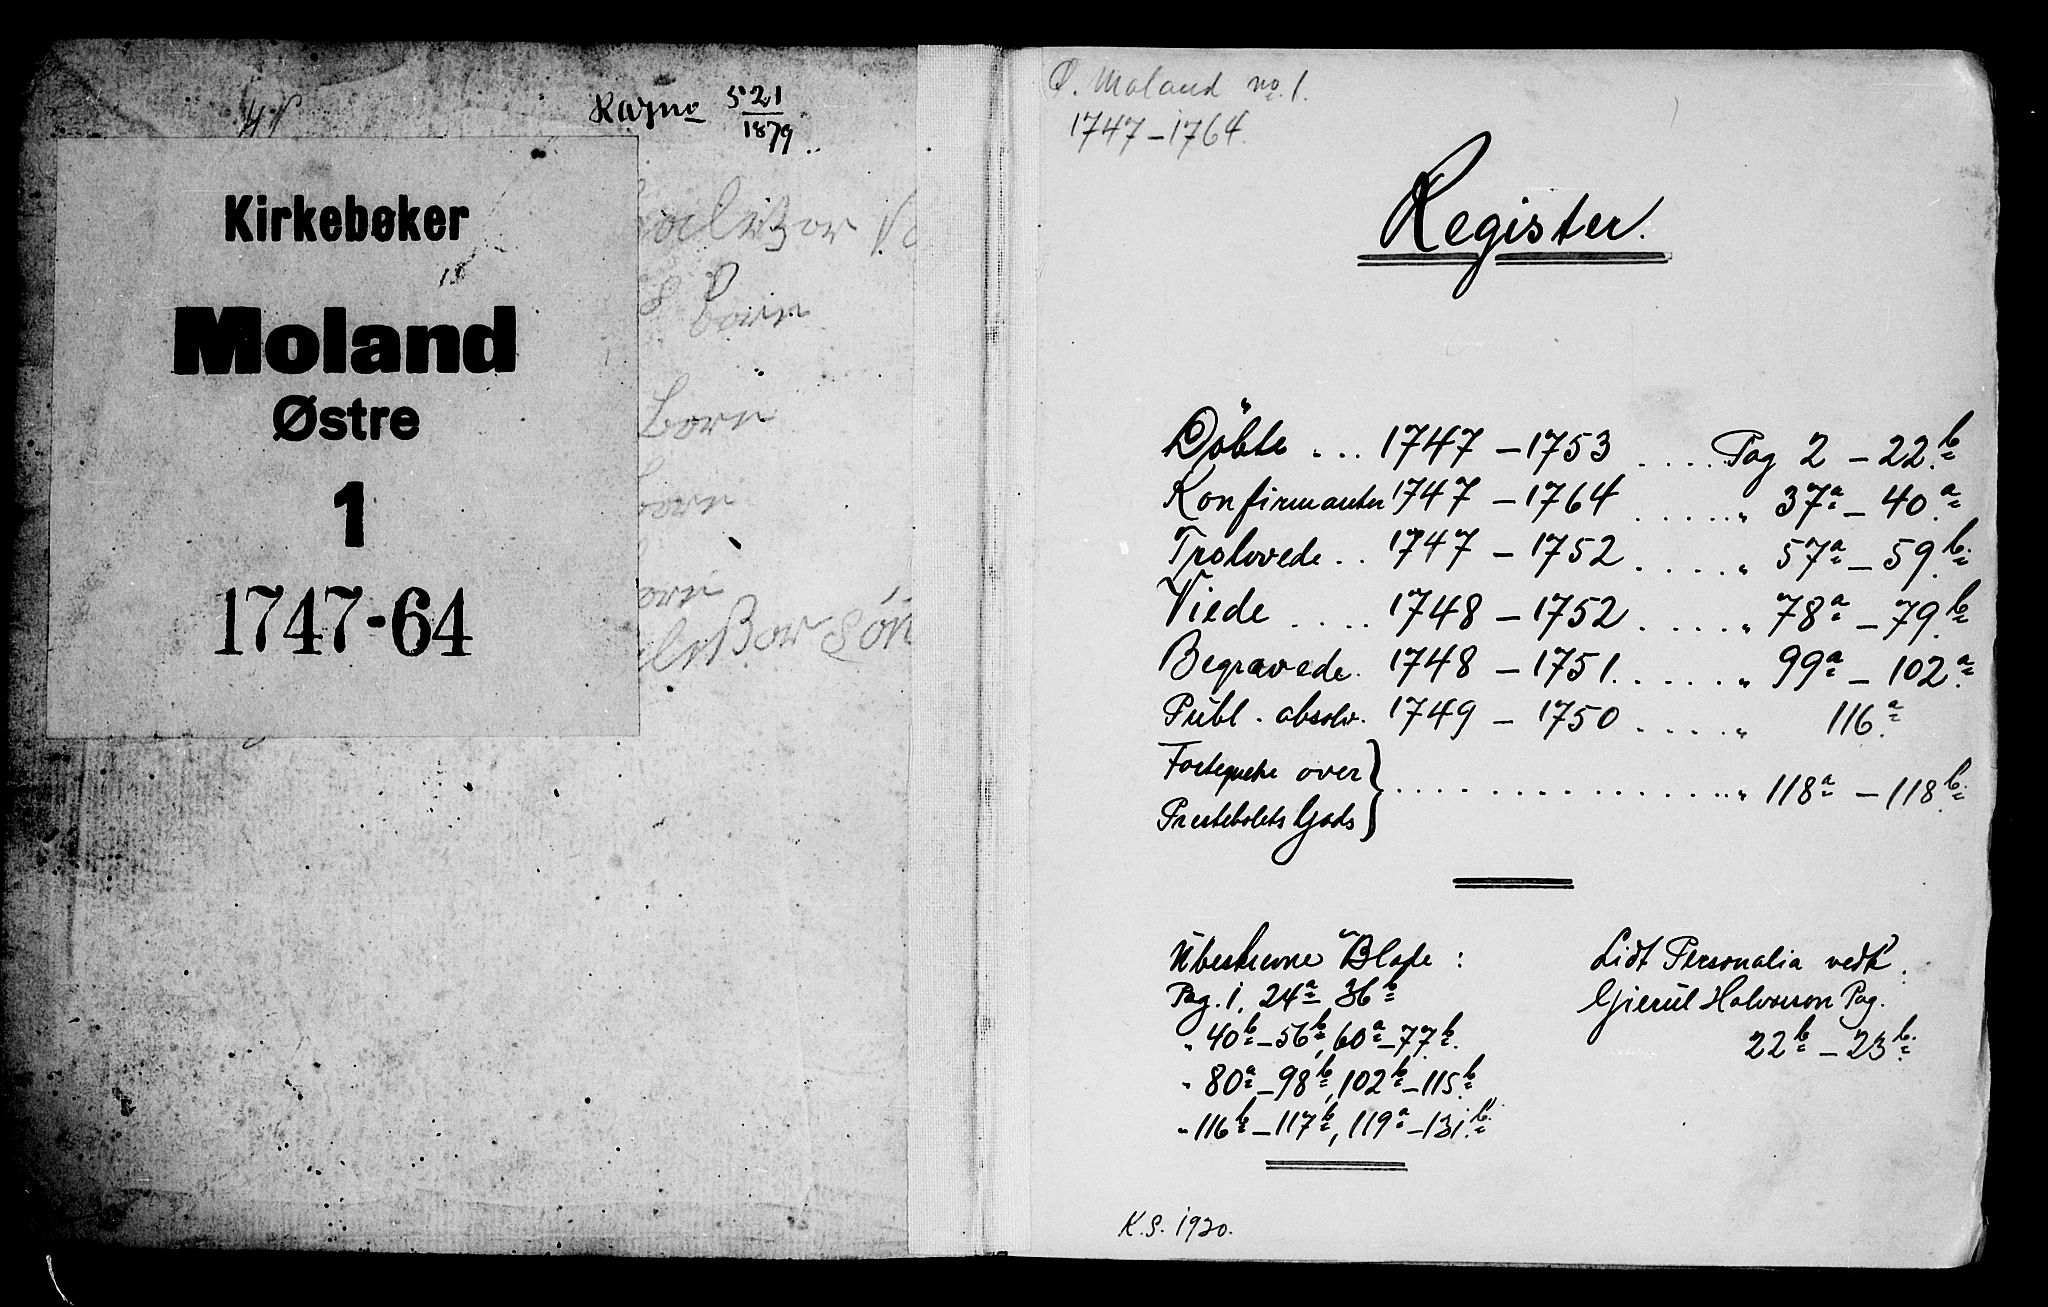 521
1879
Kirkebøker
Moland
Østre
1
1747-64
Born
Born
Ø. Moland no. 1.
1747-1764.
Register.
Döbte ... 1747 - 1753 .... Pag 2 - 22b
Konfirmanter 1747 - 1764 ..... " 37a - 40a
Trolovede .. 1747 - 1752 ..... " 57a - 59b
Viede .... 1748 - 1752 ..... " 78a - 79b
Begravede. 1748 - 1751 ..... " 99a - 102a
Publ. absolv. 1749 - 1750 ..... " 116a
Fortegnelse over
Prestebolets Gods } ................ " 118a - 118b
Ubeskrevne Blade :
Pag. 1, 24a - 36b
" 40b - 56b, 60a - 77b.
" 80a - 98b, 102b - 115b
" 116b - 117b, 119a - 131b
Lidt Personalia vedk.
Gjerul Halvorson Pag.
22b - 23b
K.S. 1920.